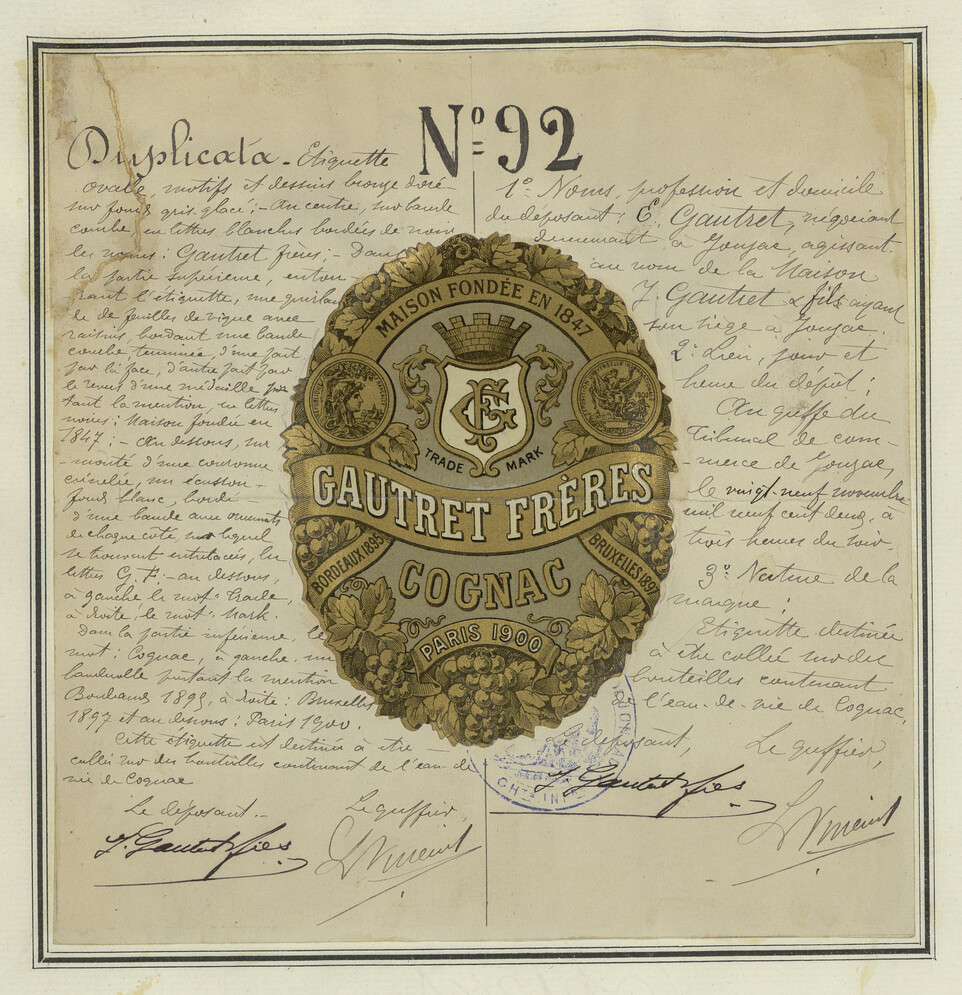 Nº 92
Duplicata - Etiquette
ovale, motifs et dessins bronze doré
sur fond gris glacé; - Au centre, sur bande
courbe en lettres blanches bordées de noir
les noms: Gautret frères; - Dans
la partie supérieure, entou-
rant l'étiquette, une guirlan
de de feuilles de vigne avec
raisins, bordant une bande
courbe terminée, d'une part
par la face, d'autre part par
le revers d'une médaille por
tant la mention, en lettres
noires: Maison fondée en
1847; - Au dessous, sur
monté d'une couronne
crénelée, un écusson -
fond blanc, bordé
d'une bande avec ornements
de chaque côté, sur lequel
se trouvent entrelacés, les
lettres G. F. - au dessous,
à gauche le mot: Trade,
à droite, le mot: Mark.
Dans la partie inférieure, le
mot: Cognac, à gauche, une
banderolle portant la mention
Bordeaux 1895, à droite: Bruxelles
1897 et au dessous: Paris 1900.
Cette étiquette est destinée à être
collée sur des bouteilles contenant de l'eau de
vie de Cognac
Le déposant -
Le greffier,
J. Gautret & fils
L Vincent
1º Noms, profession et domicile
du déposant: E. Gautret, négociant
demeurant à Jonzac, agissant
au nom de la Maison
J. Gautret & fils ayant
son siège à Jonzac.
2º Lieu, jour et
heure du dépôt:
Au greffe du
Tribunal de com-
merce de Jonzac,
le vingt neuf novembre
mil neuf cent deux, à
trois heures du soir.
3º Nature de la
marque:
Etiquette destinée
à être collée sur des
bouteilles contenant
l'eau-de-vie de Cognac.
Le déposant,
Le greffier,
J. Gautret & fils
L Vincent
MAISON FONDÉE EN 1847
GF
TRADE MARK
GAUTRET FRÈRES
BORDEAUX 1895
BRUXELLES 1897
COGNAC
PARIS 1900
CHTE INF